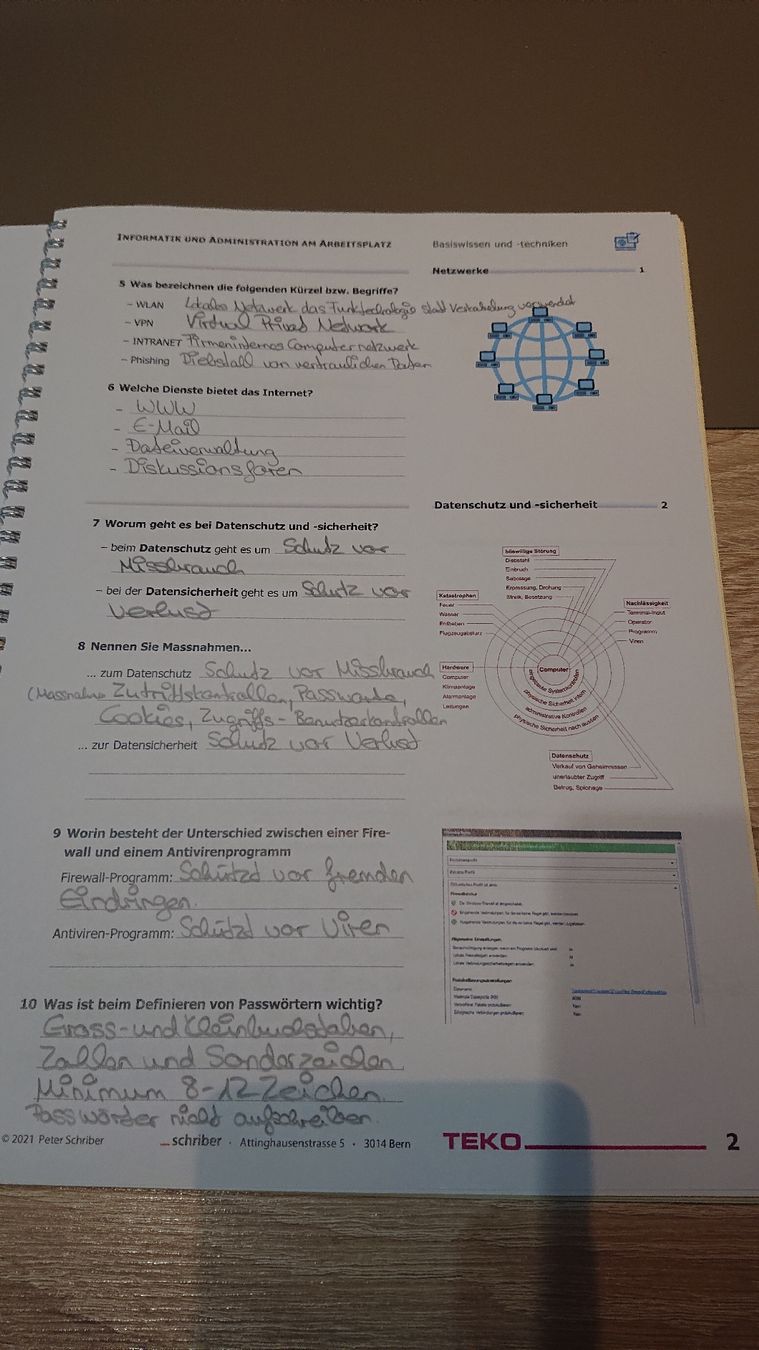 INFORMATIK UND ADMINISTRATION AM ARBEITSPLATZ
Basiswissen und -techniken
Netzwerke 1
5 Was bezeichnen die folgenden Kürzel bzw. Begriffe?
– WLAN Lokales Netzwerk das Funktechnologie statt Verkabelung verwendet
– VPN Virtual Privat Network
– INTRANET Firmeninternes Computernetzwerk
– Phishing Diebstall von vertraulichen Daten
6 Welche Dienste bietet das Internet?
- WWW
- E-Mail
- Dateiverwaltung
- Diskussionsforen
Datenschutz und -sicherheit 2
7 Worum geht es bei Datenschutz und -sicherheit?
– beim Datenschutz geht es um Schutz vor
Missbrauch
– bei der Datensicherheit geht es um Schutz vor
Verlust
8 Nennen Sie Massnahmen...
... zum Datenschutz Schutz vor Missbrauch
(Massnahme Zutrittskontrollen, Passworte,
Cookies, Zugriffs- Benutzerkontrollen
... zur Datensicherheit Schutz vor Verlust
böswillige Störung
Diebstahl
Einbruch
Sabotage
Erpressung, Drohung
Streik, Besetzung
Katastrophen
Feuer
Wasser
Erdbeben
Flugzeugabsturz
Nachlässigkeit
Terminal-Input
Operator
Programm
Viren
Hardware
Computer
Klimaanlage
Alarmanlage
Leitungen
Computer
eingebaute Systemkontrollen
physische Sicherheit intern
administrative Kontrollen
physische Sicherheit nach aussen
Datenschutz
Verkauf von Geheimnissen
unerlaubter Zugriff
Betrug, Spionage
9 Worin besteht der Unterschied zwischen einer Fire-
wall und einem Antivirenprogramm
Firewall-Programm: Schützd vor fremden
Eindringen.
Antiviren-Programm: Schützd vor Viren
10 Was ist beim Definieren von Passwörtern wichtig?
Gross- und Kleinbuchstaben,
Zahlen und Sonderzeichen
Minimum 8-12 Zeichen.
Passwörter nicht aufschreiben.
© 2021 Peter Schriber
_schriber · Attinghausenstrasse 5 · 3014 Bern
TEKO 2